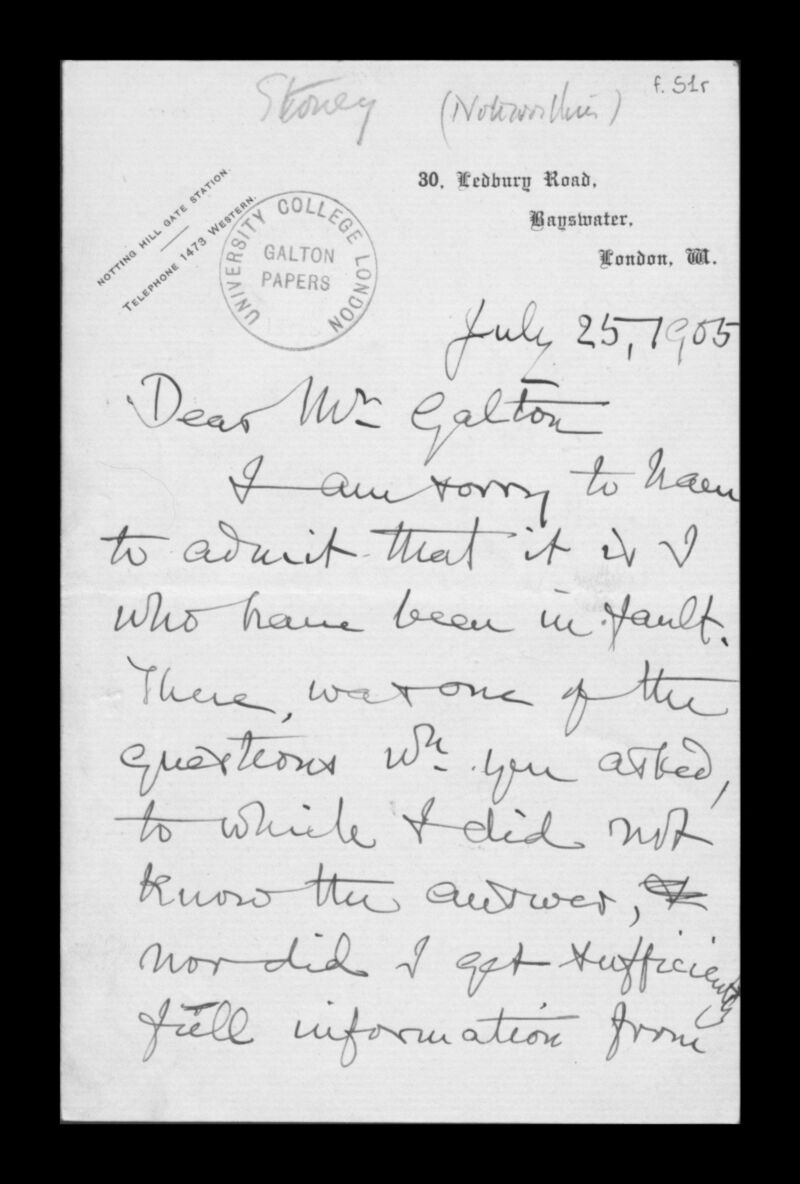 f. 51r
Stoney (Noteworthies)
30, Ledbury Road,
Bayswater,
London, W.
NOTTING HILL GATE STATION.
TELEPHONE 1473 WESTERN.
UNIVERSITY COLLEGE LONDON
GALTON
PAPERS
July 25, 1905
Dear Mr Galton
I am sorry to have
to admit that it is I
who have been in fault.
There, was one of the
questions wh. you asked,
to which I did not
know the answer, &
nor did I get sufficiently
full information from